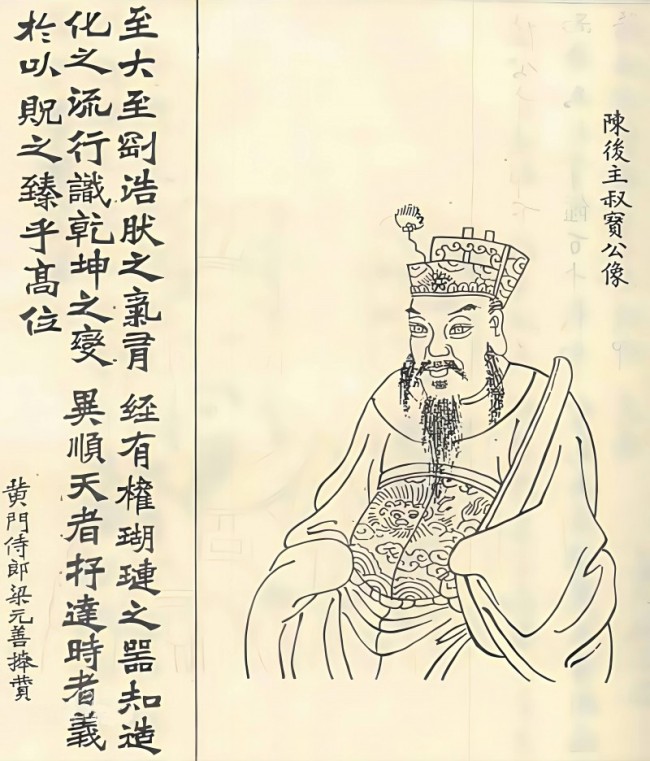 陳後主叔寶公像
至大至剛浩肰之氣有經有權瑚璉之器知造
化之流行識乾坤之變異順天者存達時者義
於以貺之臻乎高位
黃門侍郎梁元善捧贊